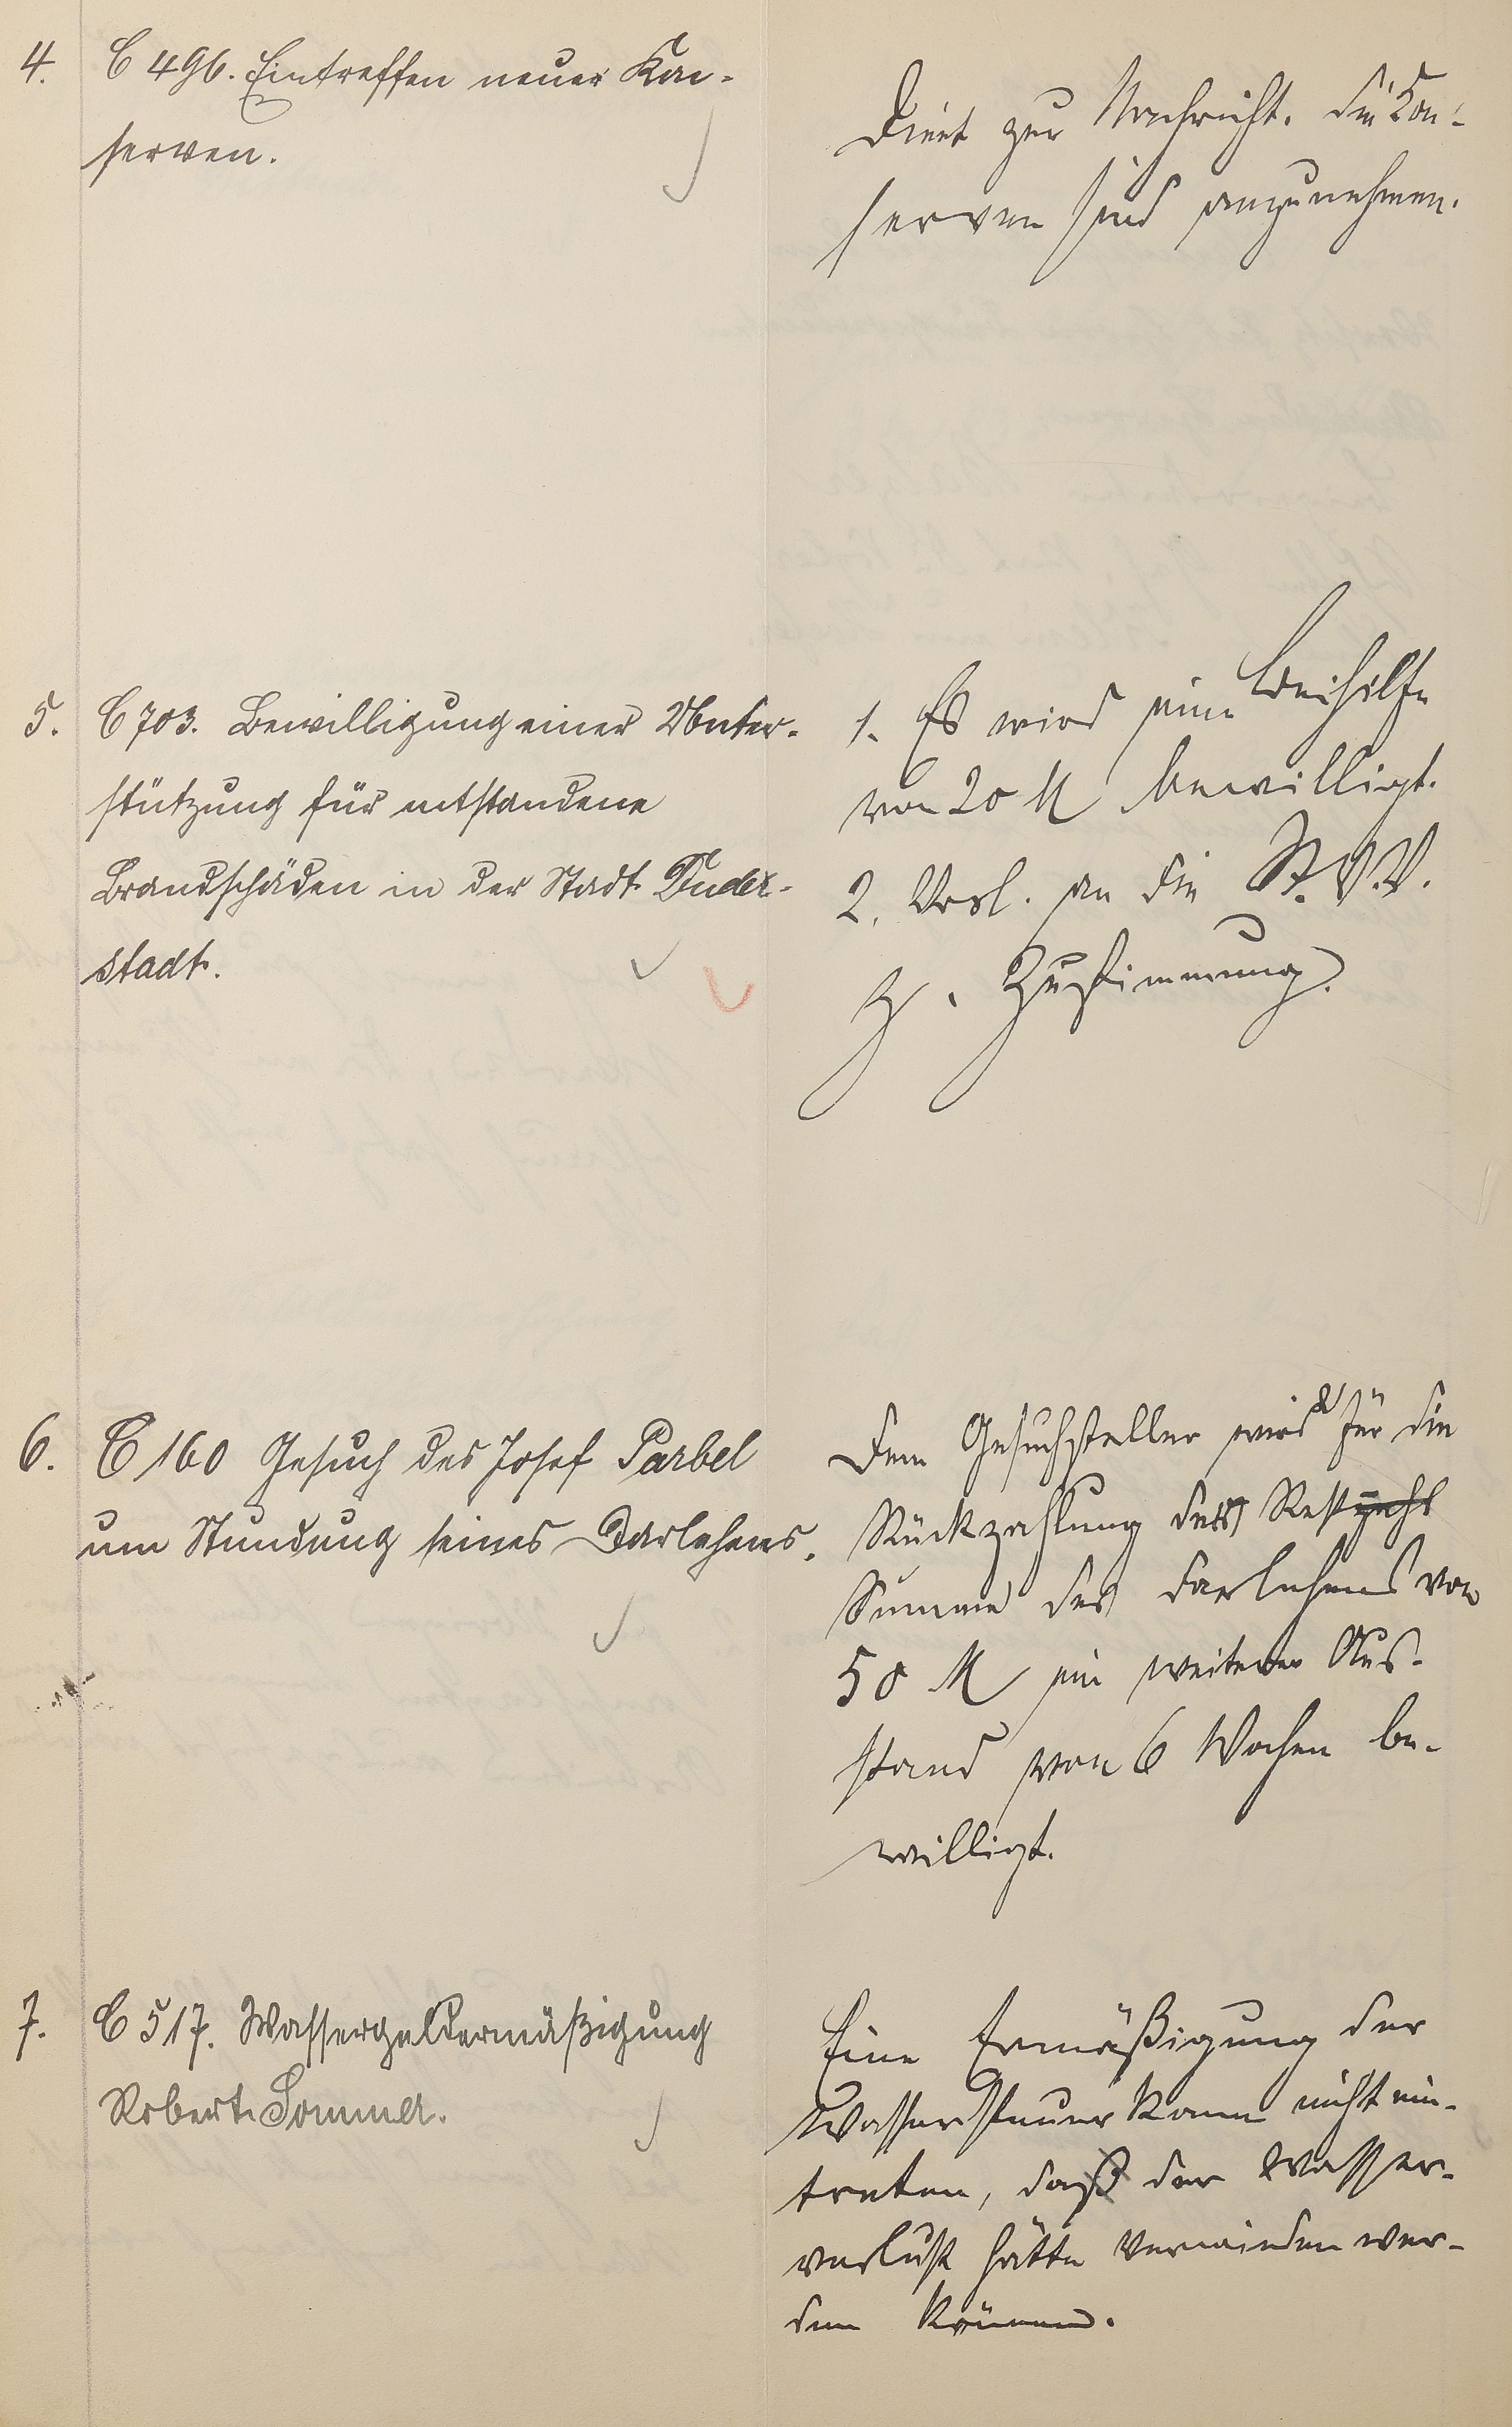 4. C 496. Eintreffen neuer Kon-
serven.
Dient zur Nachricht. Die Kon-
serven sind anzunehmen.
5. C 703. Bewilligung einer Unter-
stützung für entstandene
Brandschäden in der Stadt Duder-
stadt.
1. Es wird eine Beihilfe
von 20 M bewilligt.
2. Vorl. an die St.V.V.
z. Zustimmung.
6. C 160 Gesuch des Josef Parbel
um Stundung seines Darlehens.
Dem Gesuchsteller wird für die
Rückzahlung der Rest
Summe des Darlehens von
50 M ein weiterer Aus-
stand von 6 Wochen be-
willigt.
7. C 517. Wassergeldermäßigung
Robert Sommer.
Eine Ermäßigung der
Wassersteuer kann nicht ein-
treten, da der Wasser-
verlust hätte vermieden wer-
den können.